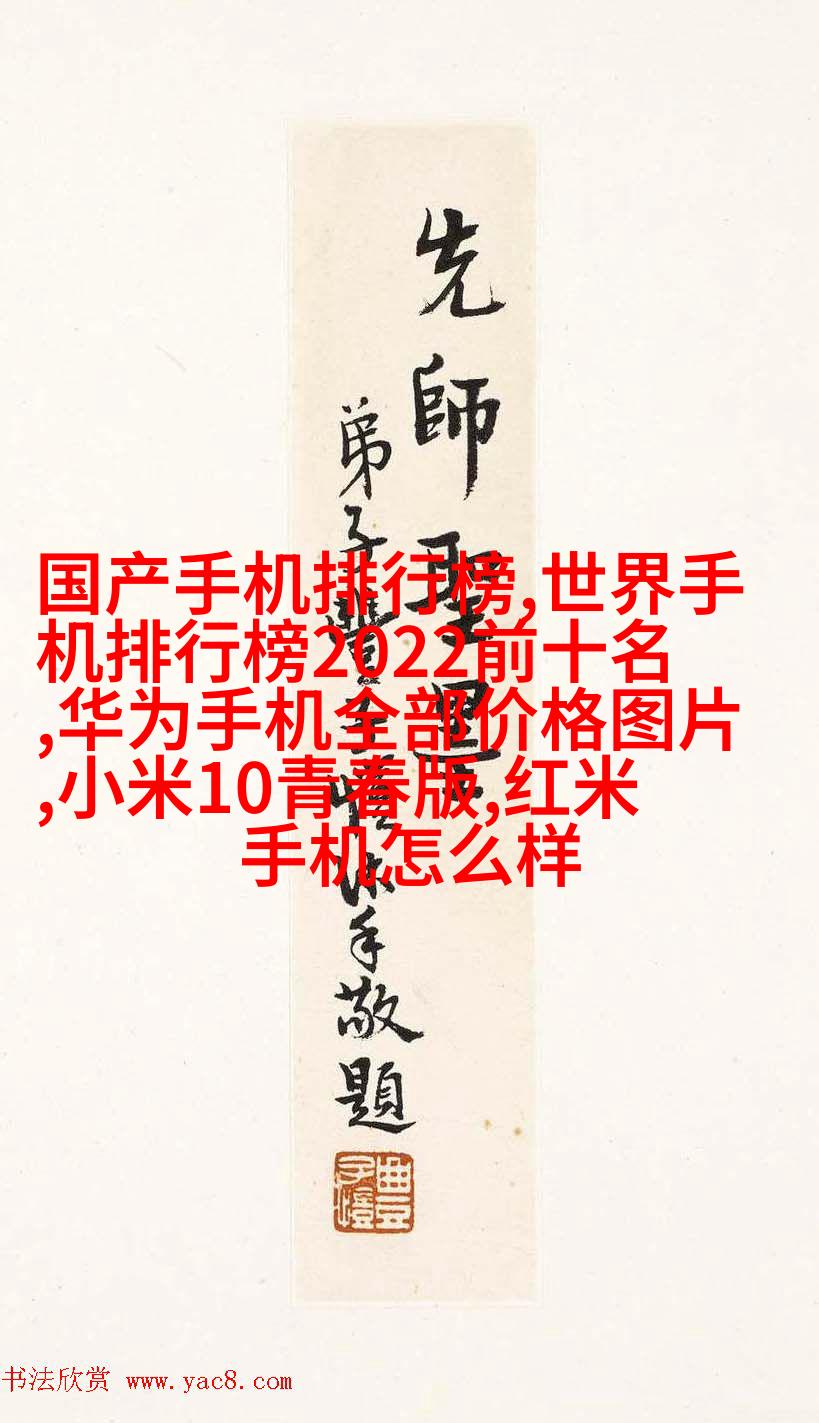 国产手机排行榜,世界手
机排行榜2022前十名
,华为手机全部价格图片
,小米10青春版,红米
手机怎么样
先師聖墨
弟子豐子愷沐手敬題
豐子愷
书法欣赏 www.yac8.com